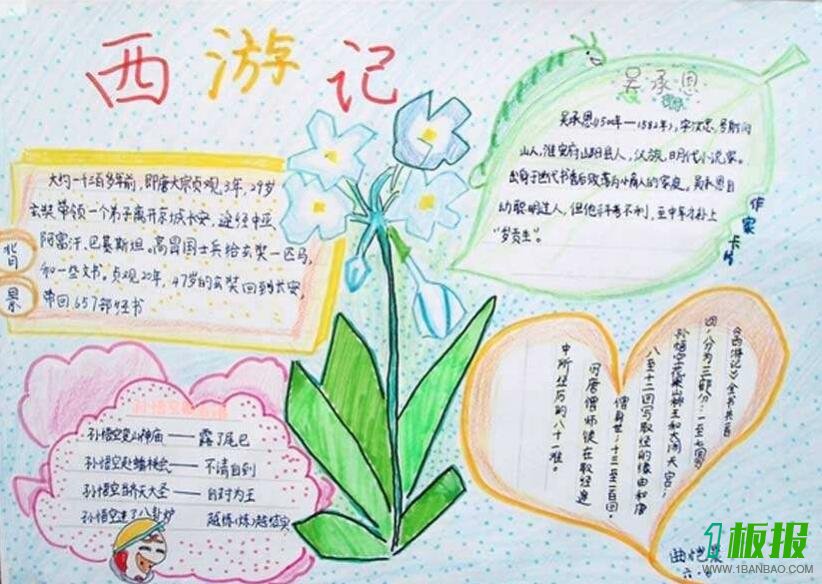 西游记
大约一千三百多年前，即唐太宗贞观3年，29岁
玄奘带领一个弟子离开京城长安，途经中亚、
阿富汗、巴基斯坦。高昌国士兵给玄奘一匹马
和一些文书。贞观20年，47岁的玄奘回到长安，
带回657部经书
背景
吴承恩
吴承恩(1500年—1582年)，字汝忠，号射阳
山人，淮安府山阳县人，汉族，明代小说家。
幼聪明过人，但他科考不利，至中年才补上
"岁贡生"。
作家卡片
孙悟空变山神庙——露了尾巴
孙悟空赴蟠桃会——不请自到
孙悟空自称齐天大圣——自封为王
孙悟空进了八卦炉 越炼(炼)越结实
《西游记》全书共百
回，分为三部分：一至七回写
孙悟空花果山称王和大闹天宫；
八至十二回写取经的缘由和唐
僧身世；十三至一百回，
写唐僧师徒在取经途
中所经历的八十一难。
1板报
WWW.1BANBAO.COM